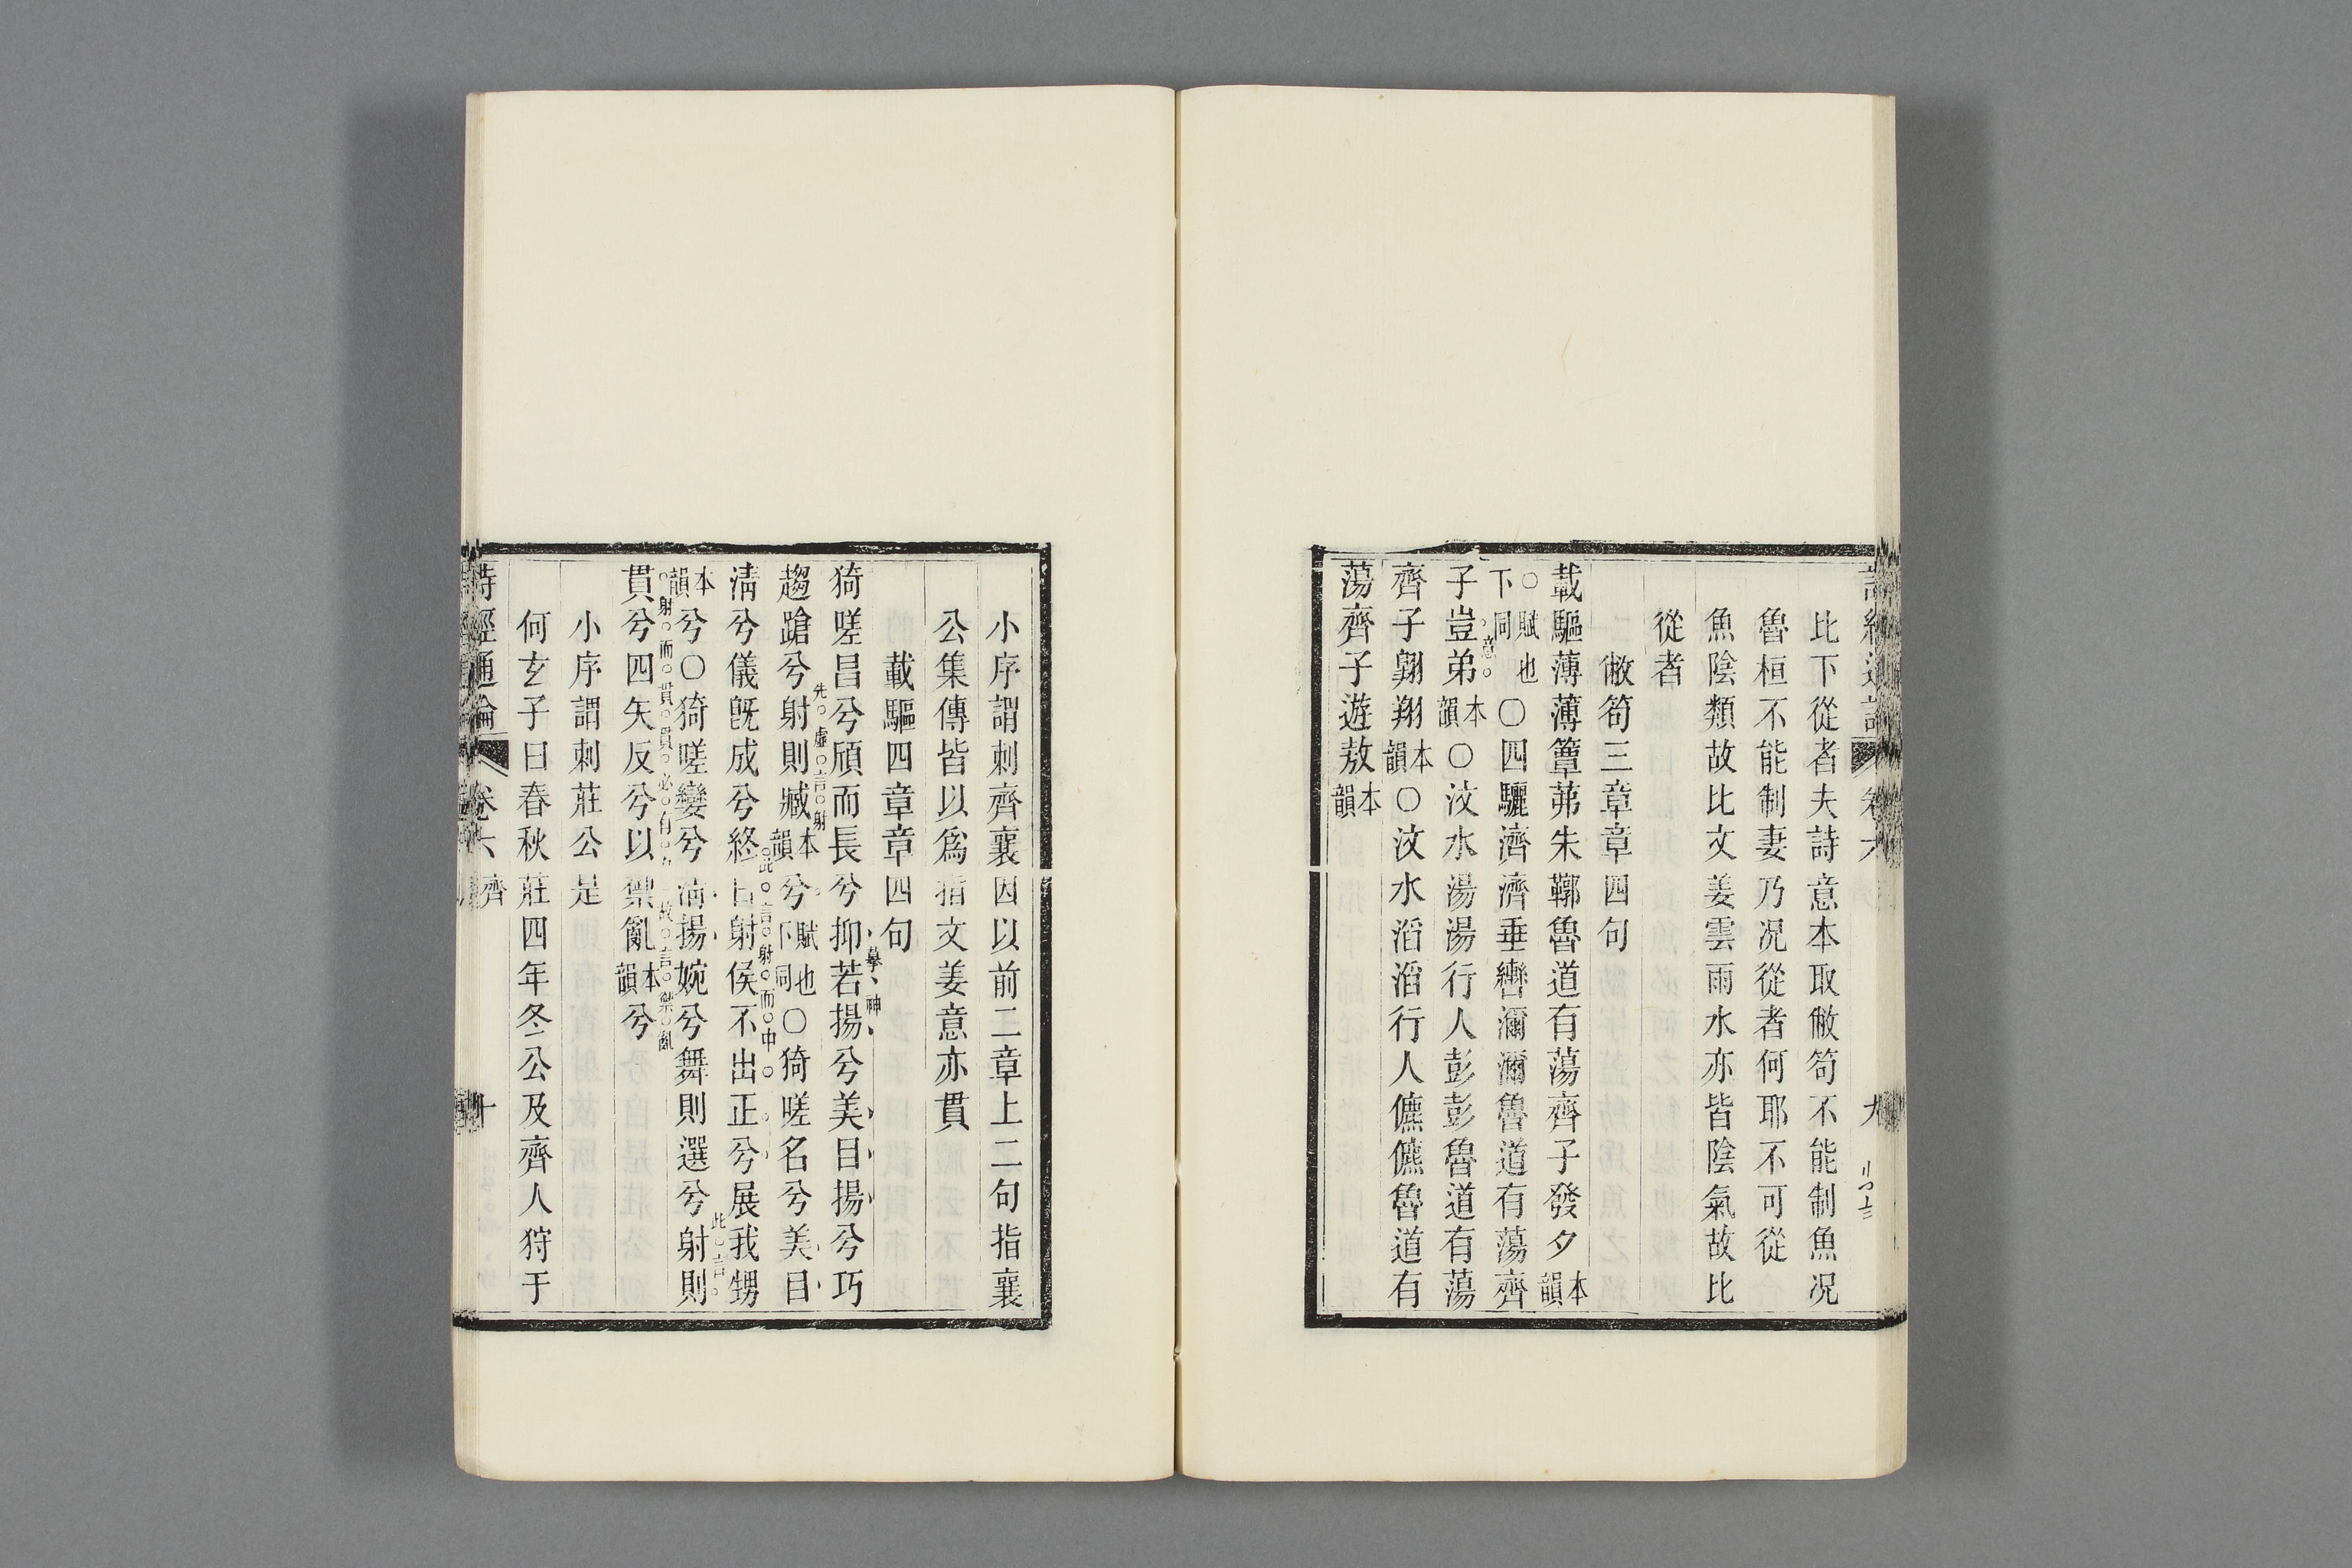 比下從者夫詩意本取敝笱不能制魚况
魯桓不能制妻乃况從者何耶不可從
魚陰類故比文姜雲雨水亦皆陰氣故比
從者
敝笱三章章四句
載驅薄薄簟茀朱鞹魯道有蕩齊子發夕本韻
○賦也下同○四驪濟濟垂轡濔濔魯道有蕩齊
子豈弟本韻○汶水湯湯行人彭彭魯道有蕩
意
齊子翺翔本韻○汶水滔滔行人儦儦魯道有
蕩齊子遊敖本韻
小序謂刺齊襄因以前二章上二句指襄
公集傳皆以爲指文姜意亦貫
載驅四章章四句
猗嗟昌兮頎而長兮抑若揚兮美目揚兮巧
摹神
趨蹌兮射則臧本韻兮賦也下同○猗嗟名兮美目
先虛言射
清兮儀旣成兮終日射侯不出正兮展我甥
此言射而中
本韻兮○猗嗟孌兮清揚婉兮舞則選兮射則
此言
貫兮四矢反兮以禦亂本韻兮
射而貫貫必有
故言禦亂
小序謂刺莊公是
何玄子曰春秋莊四年冬公及齊人狩于
詩經通論 卷六 齊 十